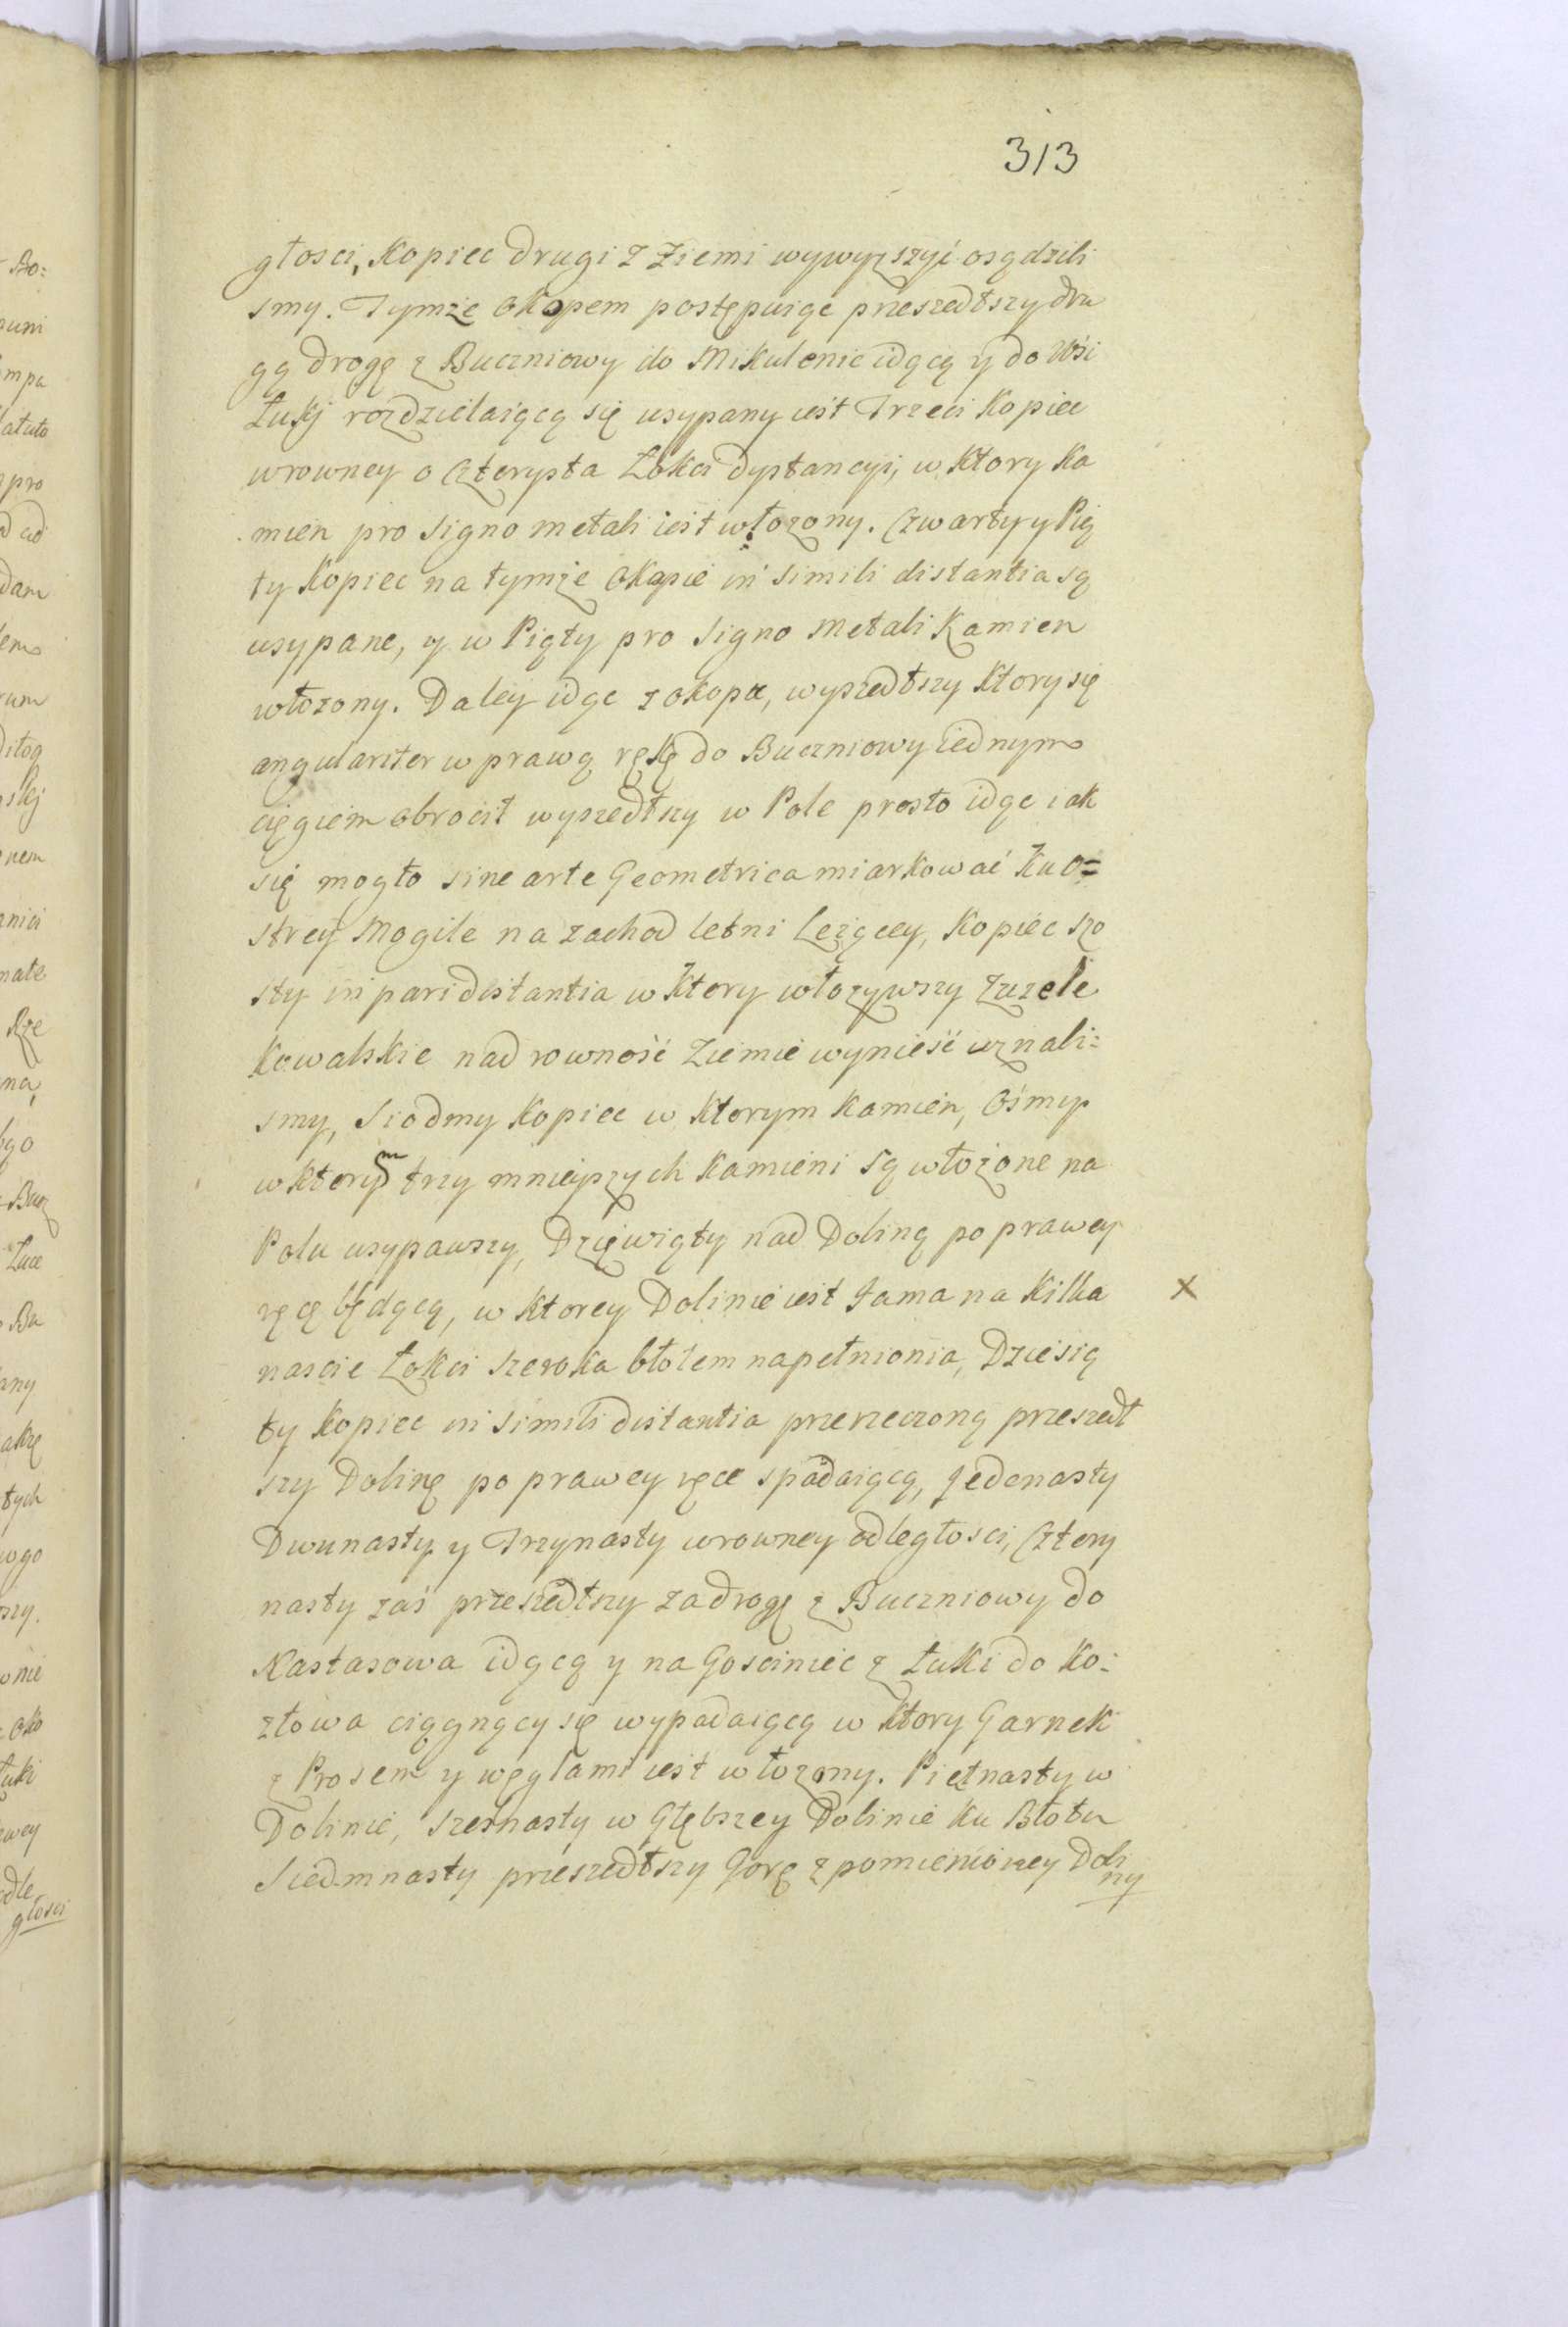 313
głosci, Kopiec drugi z Ziemi wywyzszyć osądzili
smy. Tymże Okopem postępuiąc przeszedłszy dru
gą drogę z Buczniowy do Mikulenic idącą y do Wsi
Łuki rozdzielaiącą się usypany iest Trzeci Kopiec
wrowney o Czterysta Łokci dystancyi, w Ktory Ka
mien pro Signo metali iest włozony. Czwarty y Pią
ty Kopiec na tymże Okopie in simili distantia są
usypane, y w Piąty pro Signo Metali Kamien
włozony. Daley idąc z okopu, wyszedłszy Ktory się
angulariter w prawą rękę do Buczniowy iednym
cięgiem obrocił wyszedłszy w Pole prosto idąc iak
się mogło sine arte Geometrica miarkować Ku O=
strey Mogile na zachod letni Leżącey, Kopiec szo
sty in pari distantia w Ktory włozywszy Zuzele
Kowalskie nad rowność Ziemie wynieść uznali=
smy, Siodmy Kopiec w Ktorym Kamien, Osmy
w ktorym trzy mnieyszych Kamieni są włożone na
Polu usypawszy, Dziewiąty nad Doliną po prawey
ręcę będącą, w Ktorey Dolinie iest Jama na Kilka
x
nascie Łokci szeroka błotem napełnionia, Dziesią
ty Kopiec in simili distantia przerzeczoną przeszedł
szy Dolinę po prawey ręce spadaiącą, Jedenasty
Dwunasty y Trzynasty wrowney odległosci, Cztery
nasty zaś przeszedłszy za drogę z Buczniowy do
Nastasowa idącą y na Gosciniec z Łuki do Ko=
złowa ciągnący się wypadaiącą w Ktory Garnek
z Prosem y węglami iest włozony. Piętnasty w
Dolinie, Szesnasty w Głębszey Dolinie Ku Błotu
Siedmnasty przeszedłszy Gorę z pomienioney Doli
ny
Bo:
muni
mpa
atuto
pro
ad
dam
rum
nem
mate
Rze
na
go
Bucz
Łuce
Bu
any
akże
tych
wgo
szy.
oko
Łuki
wey
odle
głosci